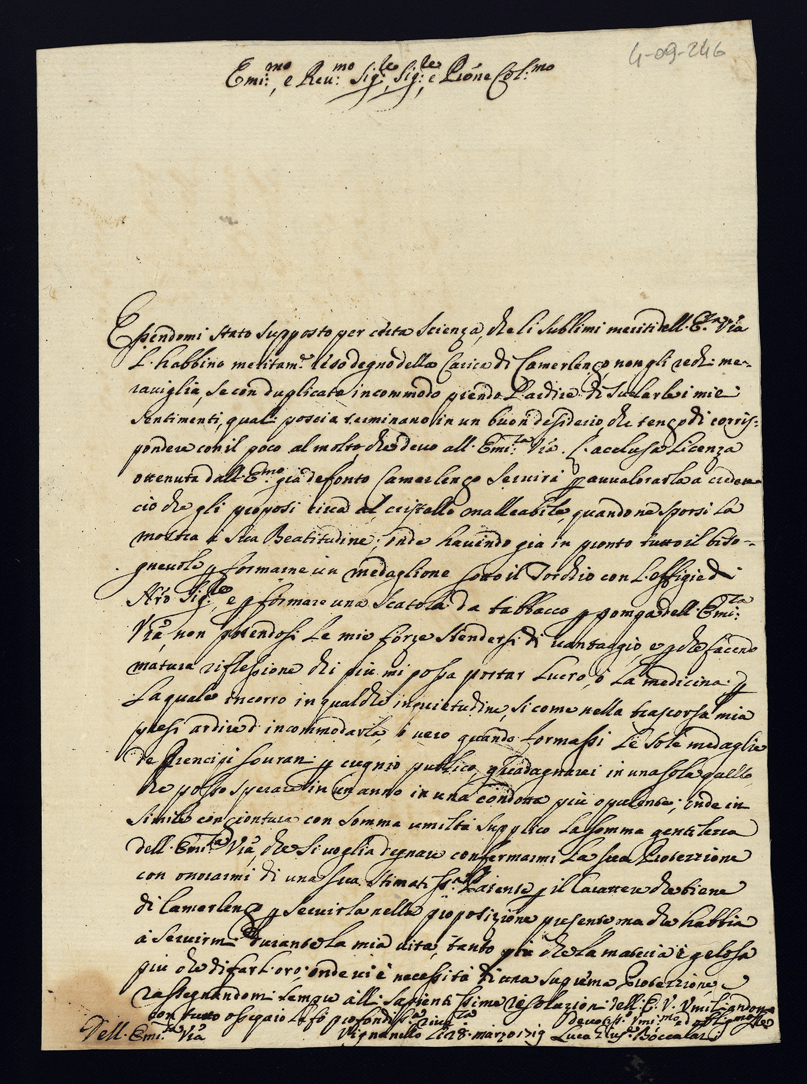 4-09-246
Emi:mo, e Reu:mo Sig:re, Sig:re e Prõne Col:mo
Essendomi stato supposto per certa scienza, che li sublimi meriti dell'E:za Vra
l'habbino meritam:te reso degno della Carica di Camerlengo non gli rechi me-
raviglia, se con duplicate incommodo prendo l'ardire di suelarle i miei
sentimenti, quali poscia terminano in un buon desiderio che tengo di corris-
pondere con il poco al molto, che devo all'Emi:za Vra. L'acclusa Licenza
ottenuta dall'E:mo già defonto Camerlengo seruirà p auualorarla a credere
ciò che gli proposi circa al cristallo malleabile, quando ne sporsi la
mostra a Sua Beatitudine; onde hauendo già in pronto tutto il biso-
gneuole p formarne un medaglione sotto il Torchio con l'effigie di
Nrõ Sig:re, e p formare una scatola da tabbacco p pompa dell'Emi:za
Vra, non potendosi le mie forze stendersi di uantaggio, e p che facendo
matura riflessione chi più mi possa portar lucro, ò la medicina p
la quale incorro in qualche inquietudine, si come nella trascorsa mia
presi ardire d'incommodarla, ò vero quando formassi le sole medaglie
de Prencipi sourani p cugnio publico, guadagnarei in una sole quello,
che posso sperare in un anno in una condotta più opulente; onde in
simile congiontura con somma umiltà supplico la somma gentilezza
dell'Emi:za Vra, che si voglia degnare confermarmi la sua Protezzione
con onorarmi di una sua stimatiss:a Patente p il carattere che tiene
di Camerlengo p seruirla nella proposizione presente ma che habbia
à seruirmi durante la mia uita, tanto più che la materia è gelosa
più che di far l'oro; onde ui è necessità di una suprema Protezzione, e
rassegnandomi sempre alle sapientissime resoluzioni dell'E. V. Umiliandome
con tutto ossequio le fò profondiss:a riu:za
Dell'Emi:za Vra
Vignanello li 28: marzo 1719
Deuotiss:o umi:mo ed obligmo Sre
Luca